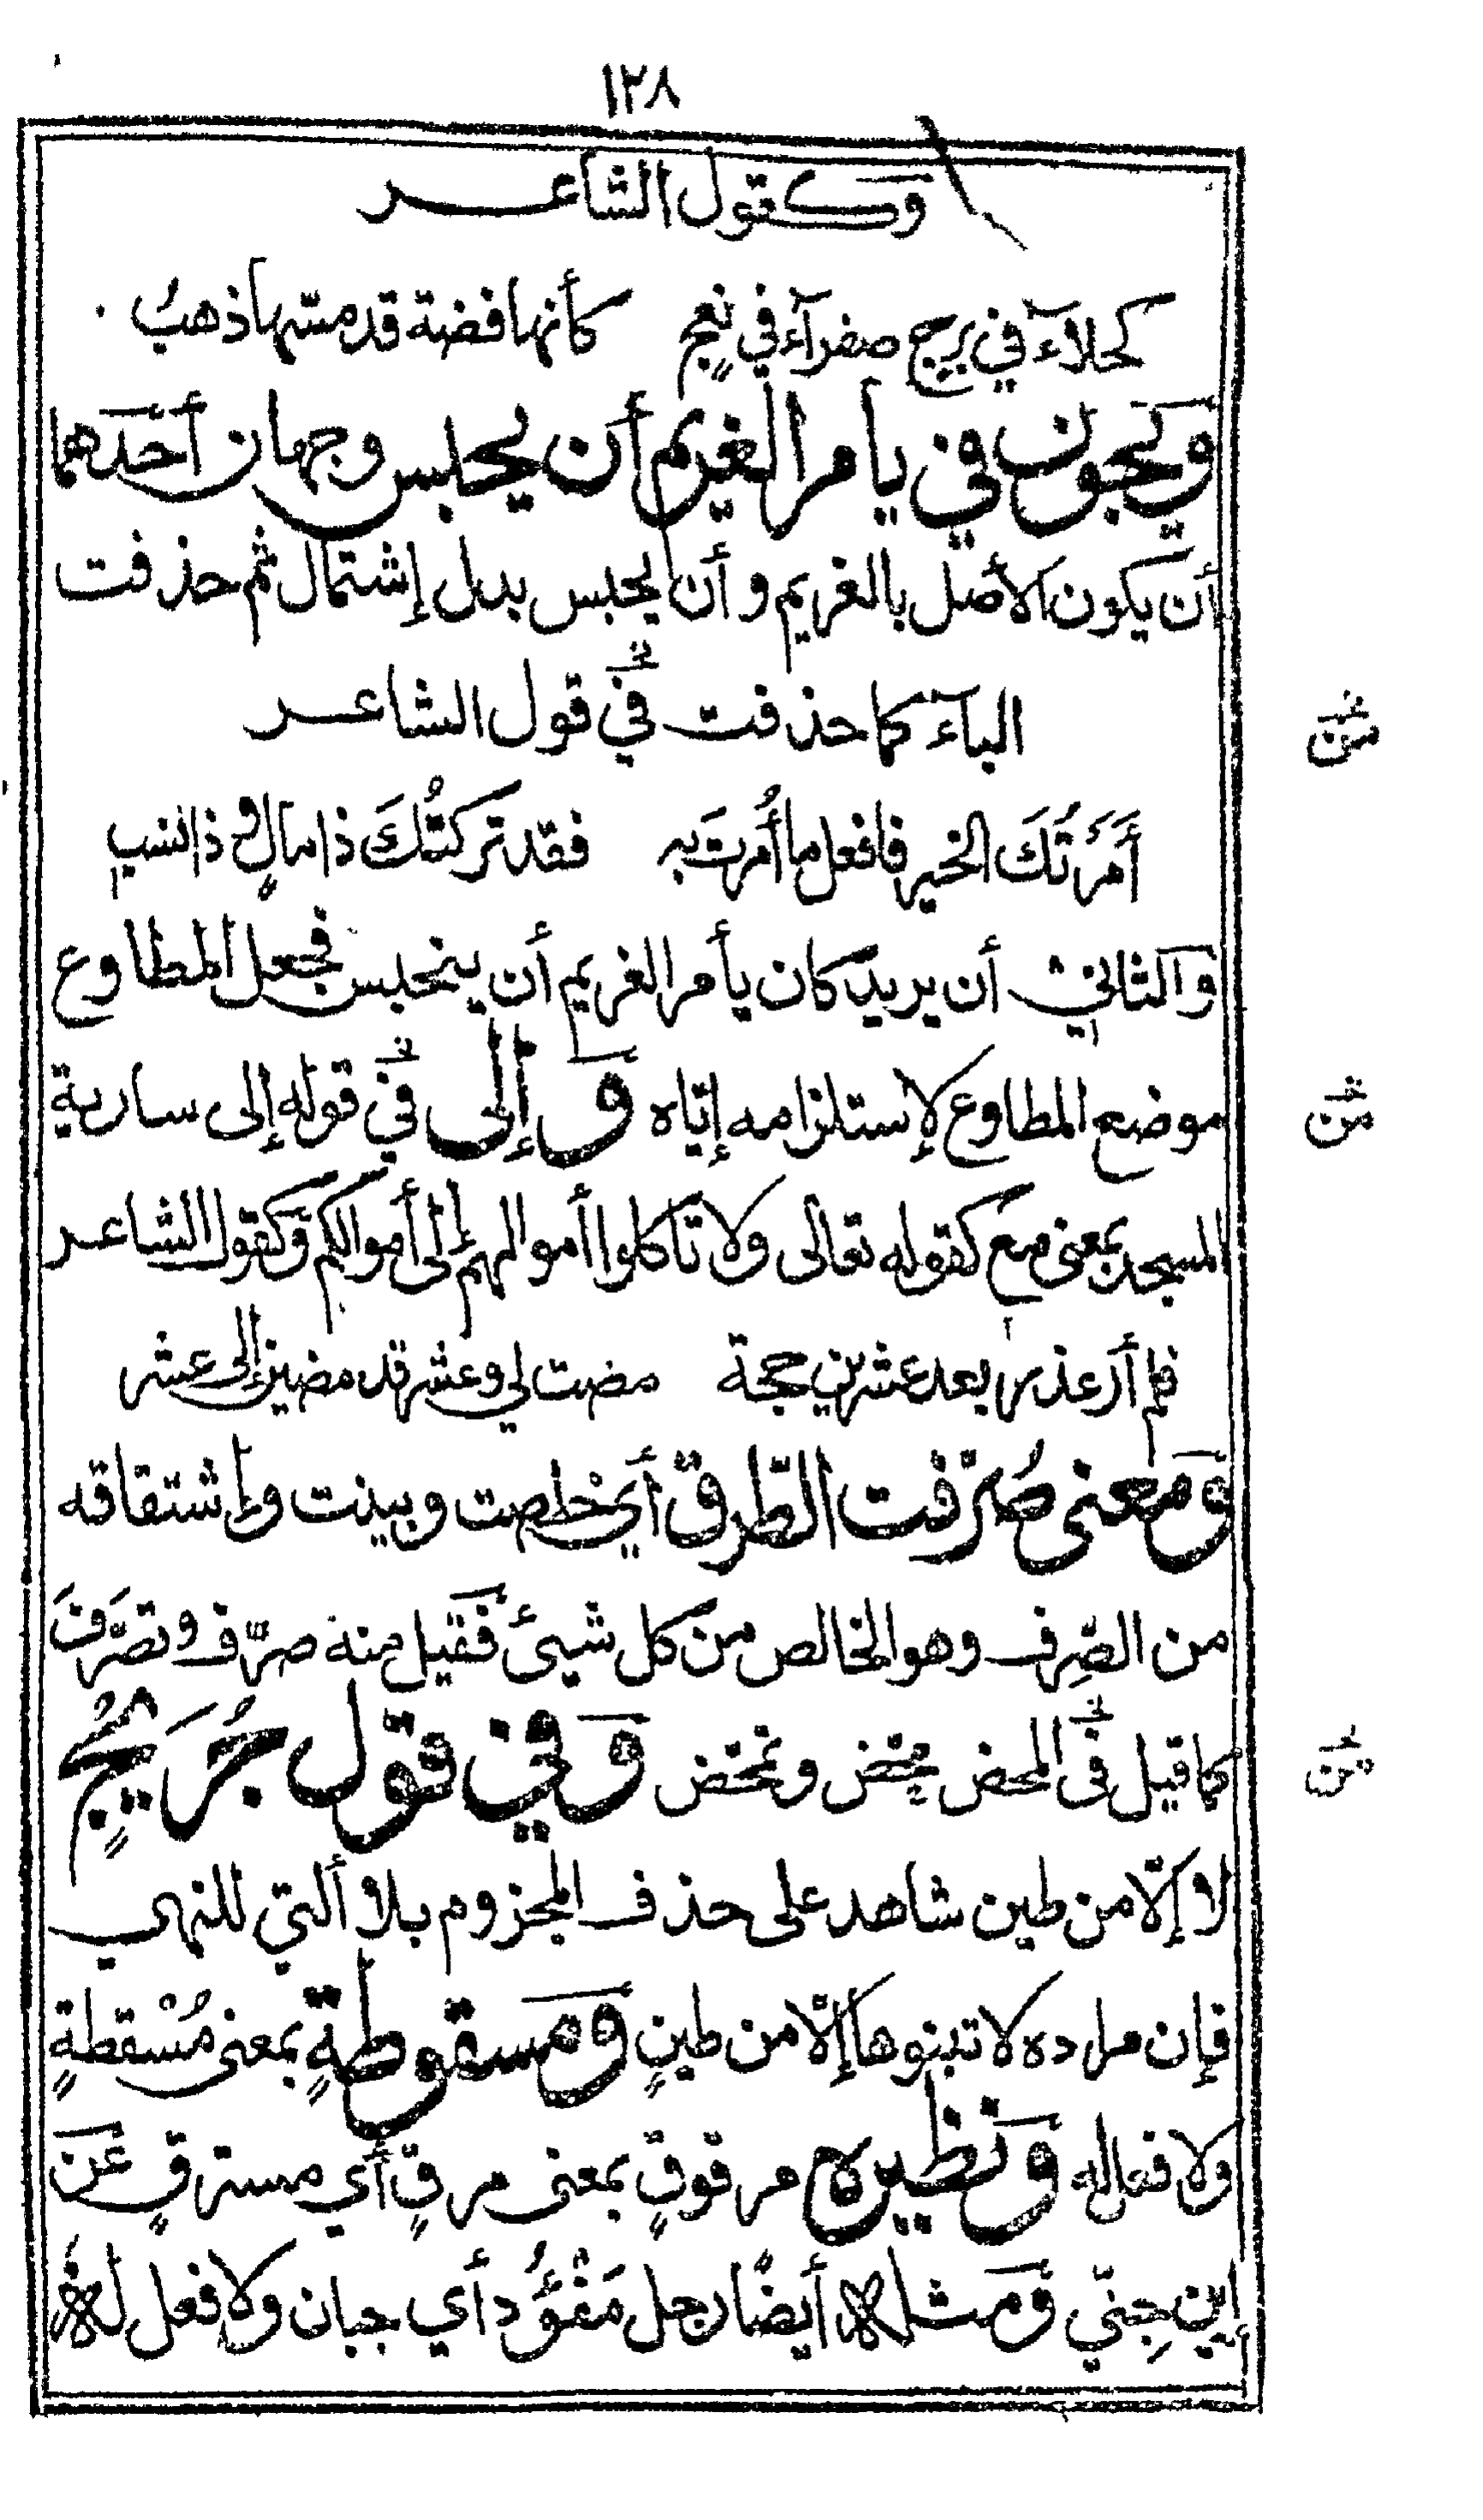 ١٢٨
وكقول الشاعر
كحلاء في برج صفرآء في نعج كأنها فضة قد مسّها ذهبُ
ويجوز في يأمر الغريم أن يحبس وجهان أحدهما
أن يكون الأصل بالغريم وأن يحبس بدل إشتمال ثم حذفت
البآء كما حذفت في قول الشاعر
من
أَمَرْتُكَ الخير فافعل ما أُمرتَ به فقد تركتُكَ ذا مالٍ وذا نشبِ
والثاني أن يريد كان يأمر الغريم أن ينحبس فجعل المطاوع
موضع المطاوع لإستلزامه إيّاه وإلى في قوله إلى سارية
من
المسجد بمعنى مع كقوله تعالى ولا تأكلوا أموالهم إلى أموالكم وكقول الشاعر
فلم أر عذرا بعد عشرين حجة مضت لي وعشر قد مضين إلى عشر
ومعنى صُرِّفت الطّرق أي خلصت وبينت وإشتقاقه
من الصِّرف وهو الخالص من كل شيئ فقيل منه صرّف وتصرّفَ
كما قيل في المحض محّض وتمحّض وفي قول جُرَيْجٍ
من
لا إلّا من طين شاهد على حذف المجزوم بلا ألتي للنهي
فإن مراده لا تبنوها إلّا من طينٍ ومسقوطةٍ بمعنى مُسْقطةٍ
ولا فعل له ونظيره مرقوقٍ بمعنى مرقٍ أي مسترقٍ عن
إبن جنّي ومثله أيضًا رجل مَفْؤُد أي جبان ولا فعل له